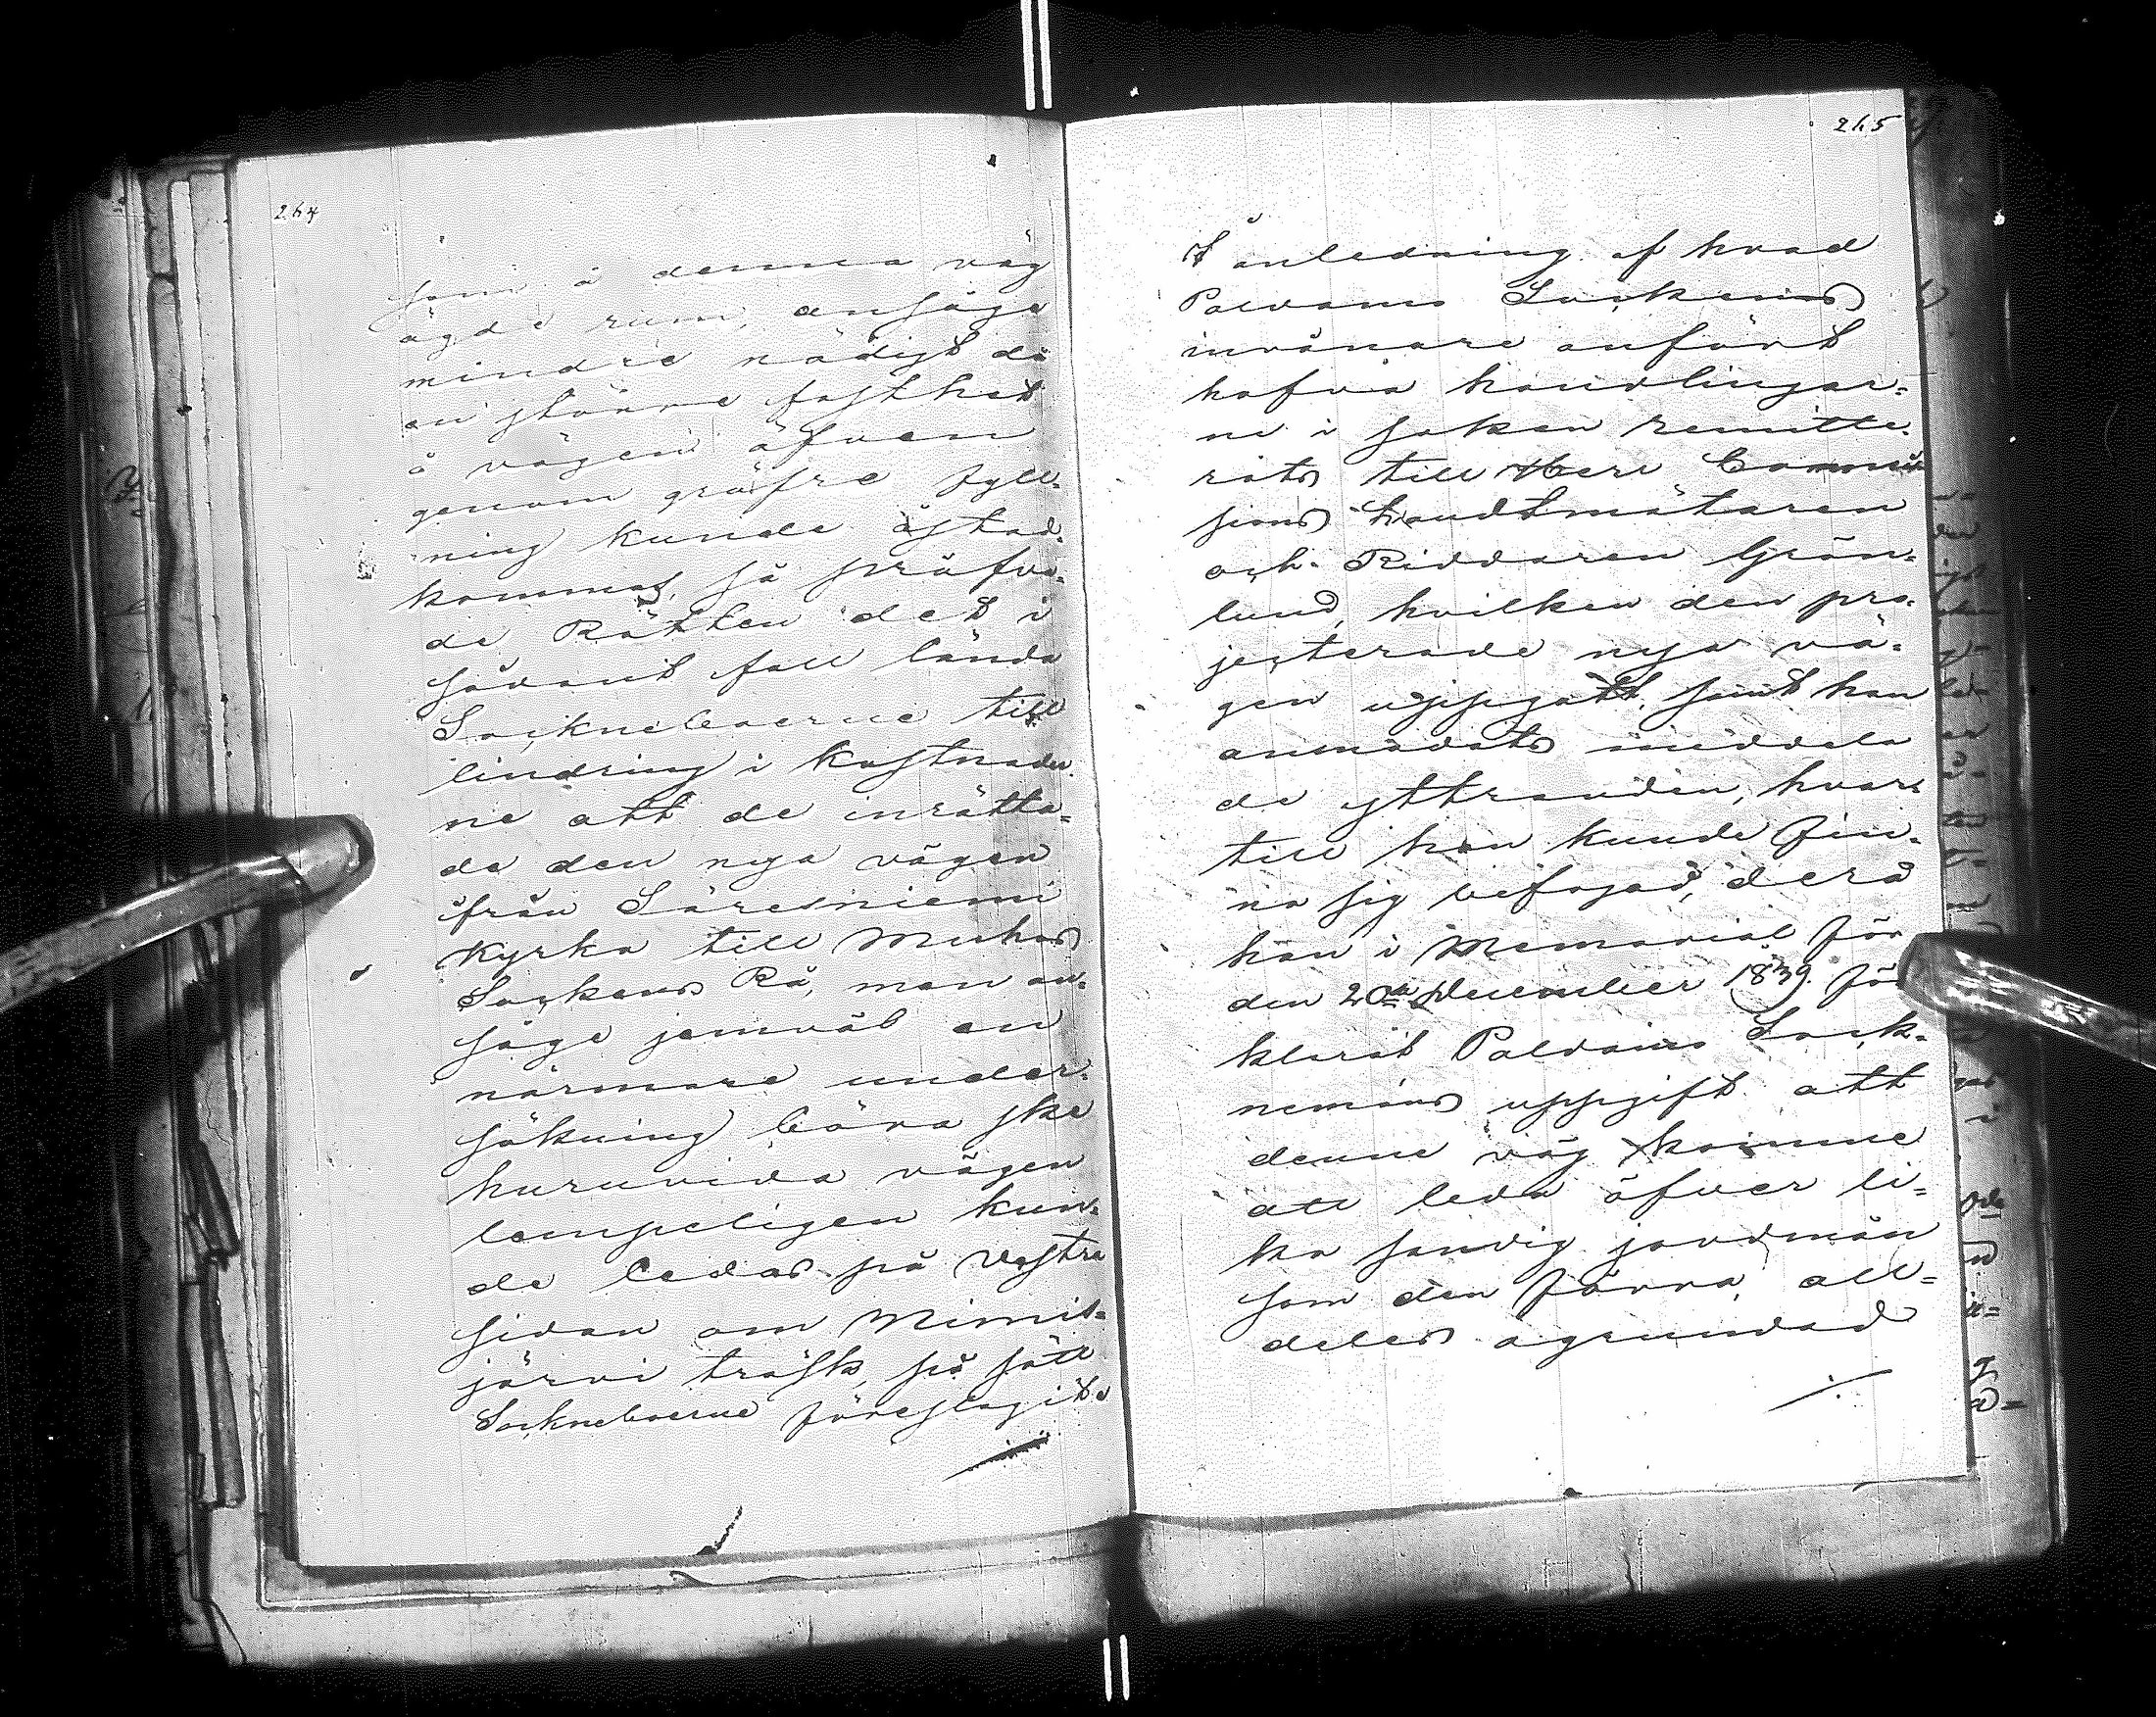 264
som å denna väg
ägde rum, ansåge
mindre nödigt då
en större fasthet
å vägen äfven
genom gröfre fyll-
ning kunde åstad-
kommas, så pröfva-
de Rätten det i
sådant fall lända
Sockneboerne till
lindring i kostnader-
ne att de inrätta-
de den nya vägen
från Säresniemi
Kyrka till Muhos
Sockens Rå, man an-
såge jemväl en
närmare under-
sökning böra ske
huruvida vägen
lempeligen kun-
de ledas på Vestra
sidan om Nimis-
järvi träsk, på sätt
Sockneboerne föreslagits
265
I anledning af hvad
Paldamo Sockens
invånare anfört
hafva handlingar-
ne i saken remitte-
rats till Herr Commis-
sions Landtmätaren
och Riddaren Grön-
lund, hvilken den pro-
jecterade nya vä-
gen uppgått, samt han
anmodats meddela
de yttranden, hvar-
till han kunde fin-
na sig befogad, derå
han i Memorial för
den 20de December 1839. för-
klarat Paldamo Sock-
nemäns uppgift att
denne väg komme
att leda öfver li-
ka sandig jordmån
som den förra, all-
deles ogrundad
./.